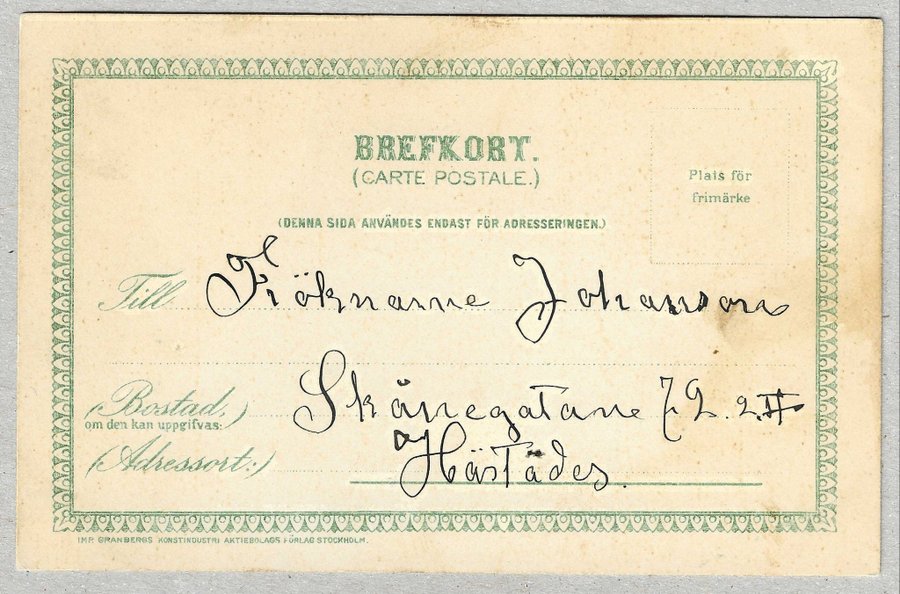 BREFKORT.
(CARTE POSTALE.)
Plats för
frimärke
(DENNA SIDA ANVÄNDES ENDAST FÖR ADRESSERINGEN.)
Till Fröknarne Johanson
(Bostad,) Skånegatane 72. 2. II
om den kan uppgifvas:
(Adressort:) Härstädes.
IMP. GRANBERGS KONSTINDUSTRI AKTIEBOLAGS FÖRLAG STOCKHOLM.